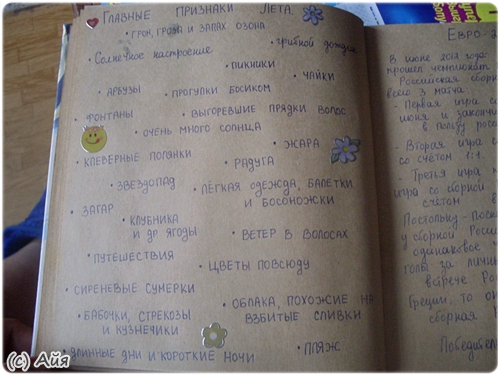 Главные признаки лета.
• гром, гроза и запах озона
• Солнечное настроение
• грибной дождик
• пикники
• чайки
• арбузы
• прогулки босиком
• фонтаны
• выгоревшие прядки волос
• очень много солнца
• жара
• клеверные полянки
• радуга
• звездопад
• лёгкая одежда, балетки
и босоножки
• загар
• клубника
и др ягоды
• ветер в волосах
• путешествия
• цветы повсюду
• сиреневые сумерки
• облака, похожие на
взбитые сливки
• бабочки, стрекозы
и кузнечики
• длинные дни и короткие ночи
• пляж
Евро-2
В июне 2012 года
прошел чемпионат
Российская сборн
всего 3 матча.
- Первая игра с
июня и закончи
в пользу росс
- Вторая игра с
со счётом 1:1.
- Третья игра
игра со сборной
счётом
Поскольку
у сборной Росси
одинаковое
голы за личн
встрече Ро
Греции, то он
сборная
Победител
(c) Айя